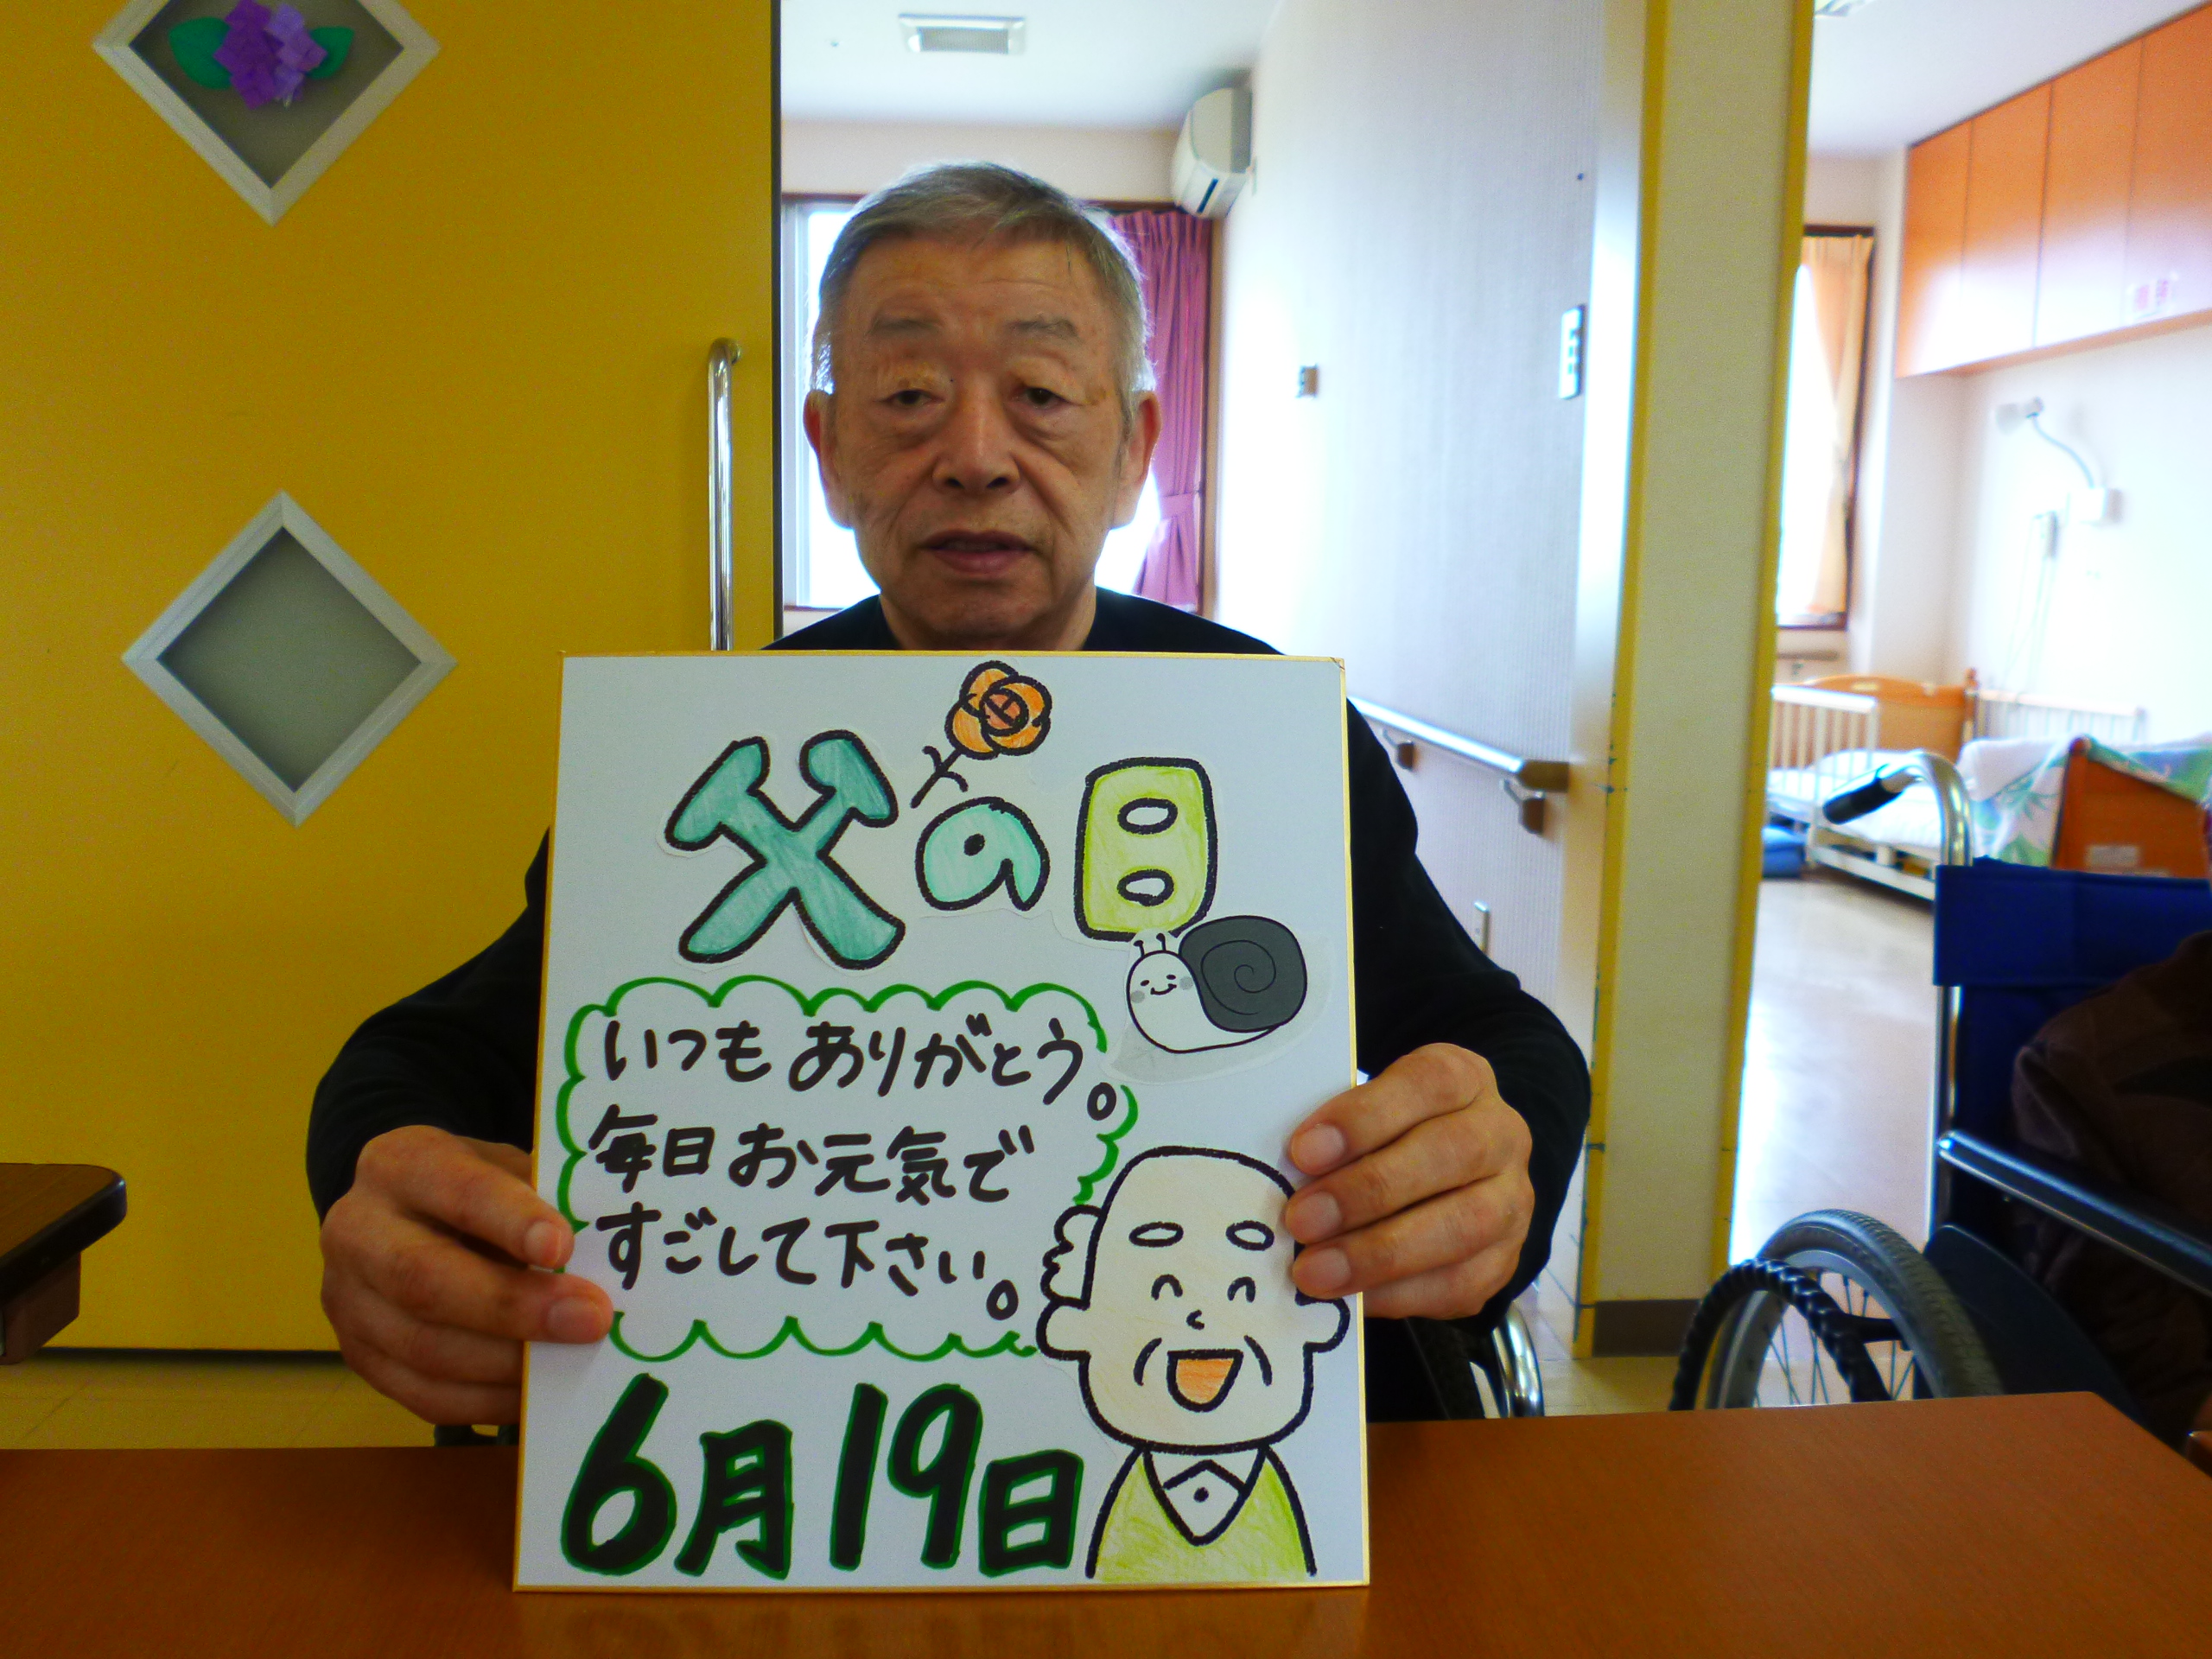 父の日
いつもありがとう。
毎日お元気で
すごして下さい。
6月19日